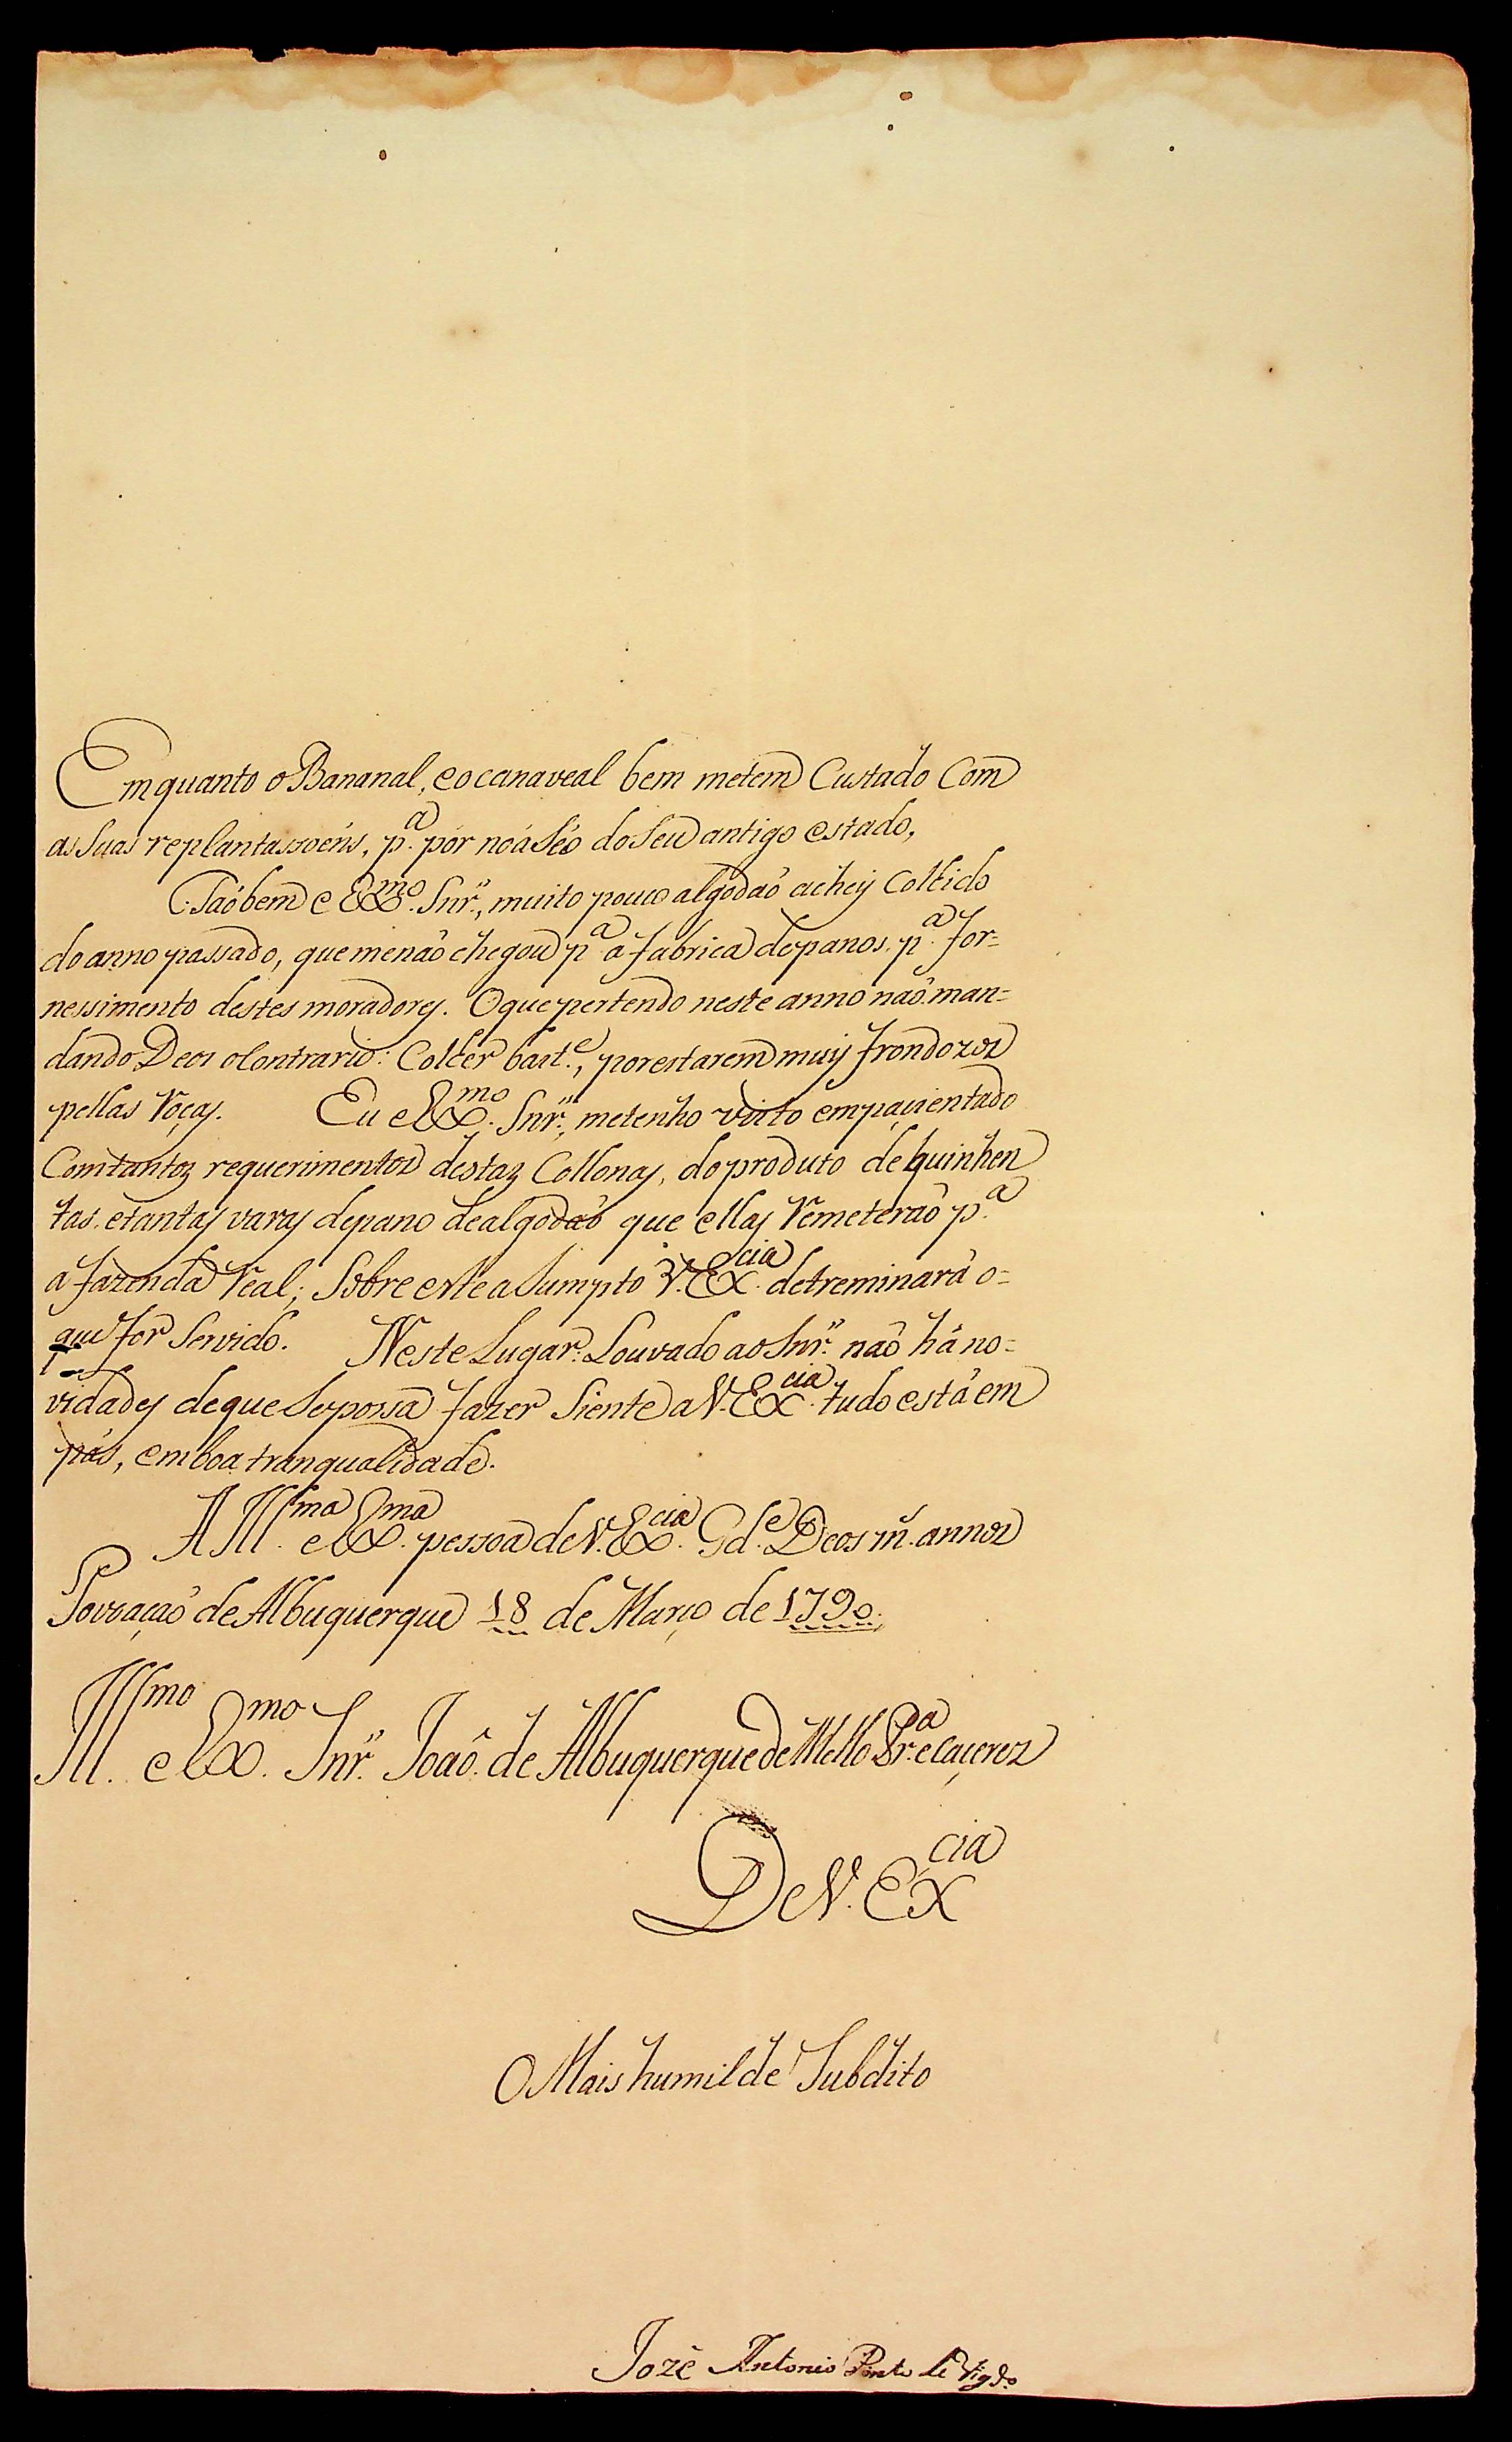 Emquanto o Bananal, eo canaveal bem metem Custado Com
as suas replantassoéns, p.ª pór no á Séo do Seu antigo estado,
Táobem e Ex.mo Snr., muito pouco algodaõ achey Colcido
do anno passado, que menaõ chegou p.ª a fabrica de panos. p.ª for=
nessimento destes moradores. O que pertendo neste anno naõ man=
dando Deos o Contrario: Colcer bast.e, por estarem muy frondozos
pellas Roças. Eu e Ex.mo Snr., metenho visto empacientado
Com tantos requerimentos destas Collonas, do produto de quinhen
tas. e tantas varas de pano de algodaõ que ellas Remeteraõ p.ª
a fazenda Real; Sobre este a Sumpto V. Ex.cia detreminará o=
que for Servido. Neste Lugar: Louvado ao Snr. naõ há no=
vidades de que Se possa fazer Siente a V. Ex.cia tudo está em
pás, em boa tranqualidade.
A Ill.ma e Ex.ma pessoa de V. Ex.cia G.de Deos m.s annos
Povoaçaõ de Albuquerque 18 de Março de 1790.
Ill.mo e Ex.mo Snr. Joaõ de Albuquerque de Mello Pr.ª e Caceres
De V. Ex.cia
O Mais humilde Subdito
Jozé Antonio Pinto de Fig.do